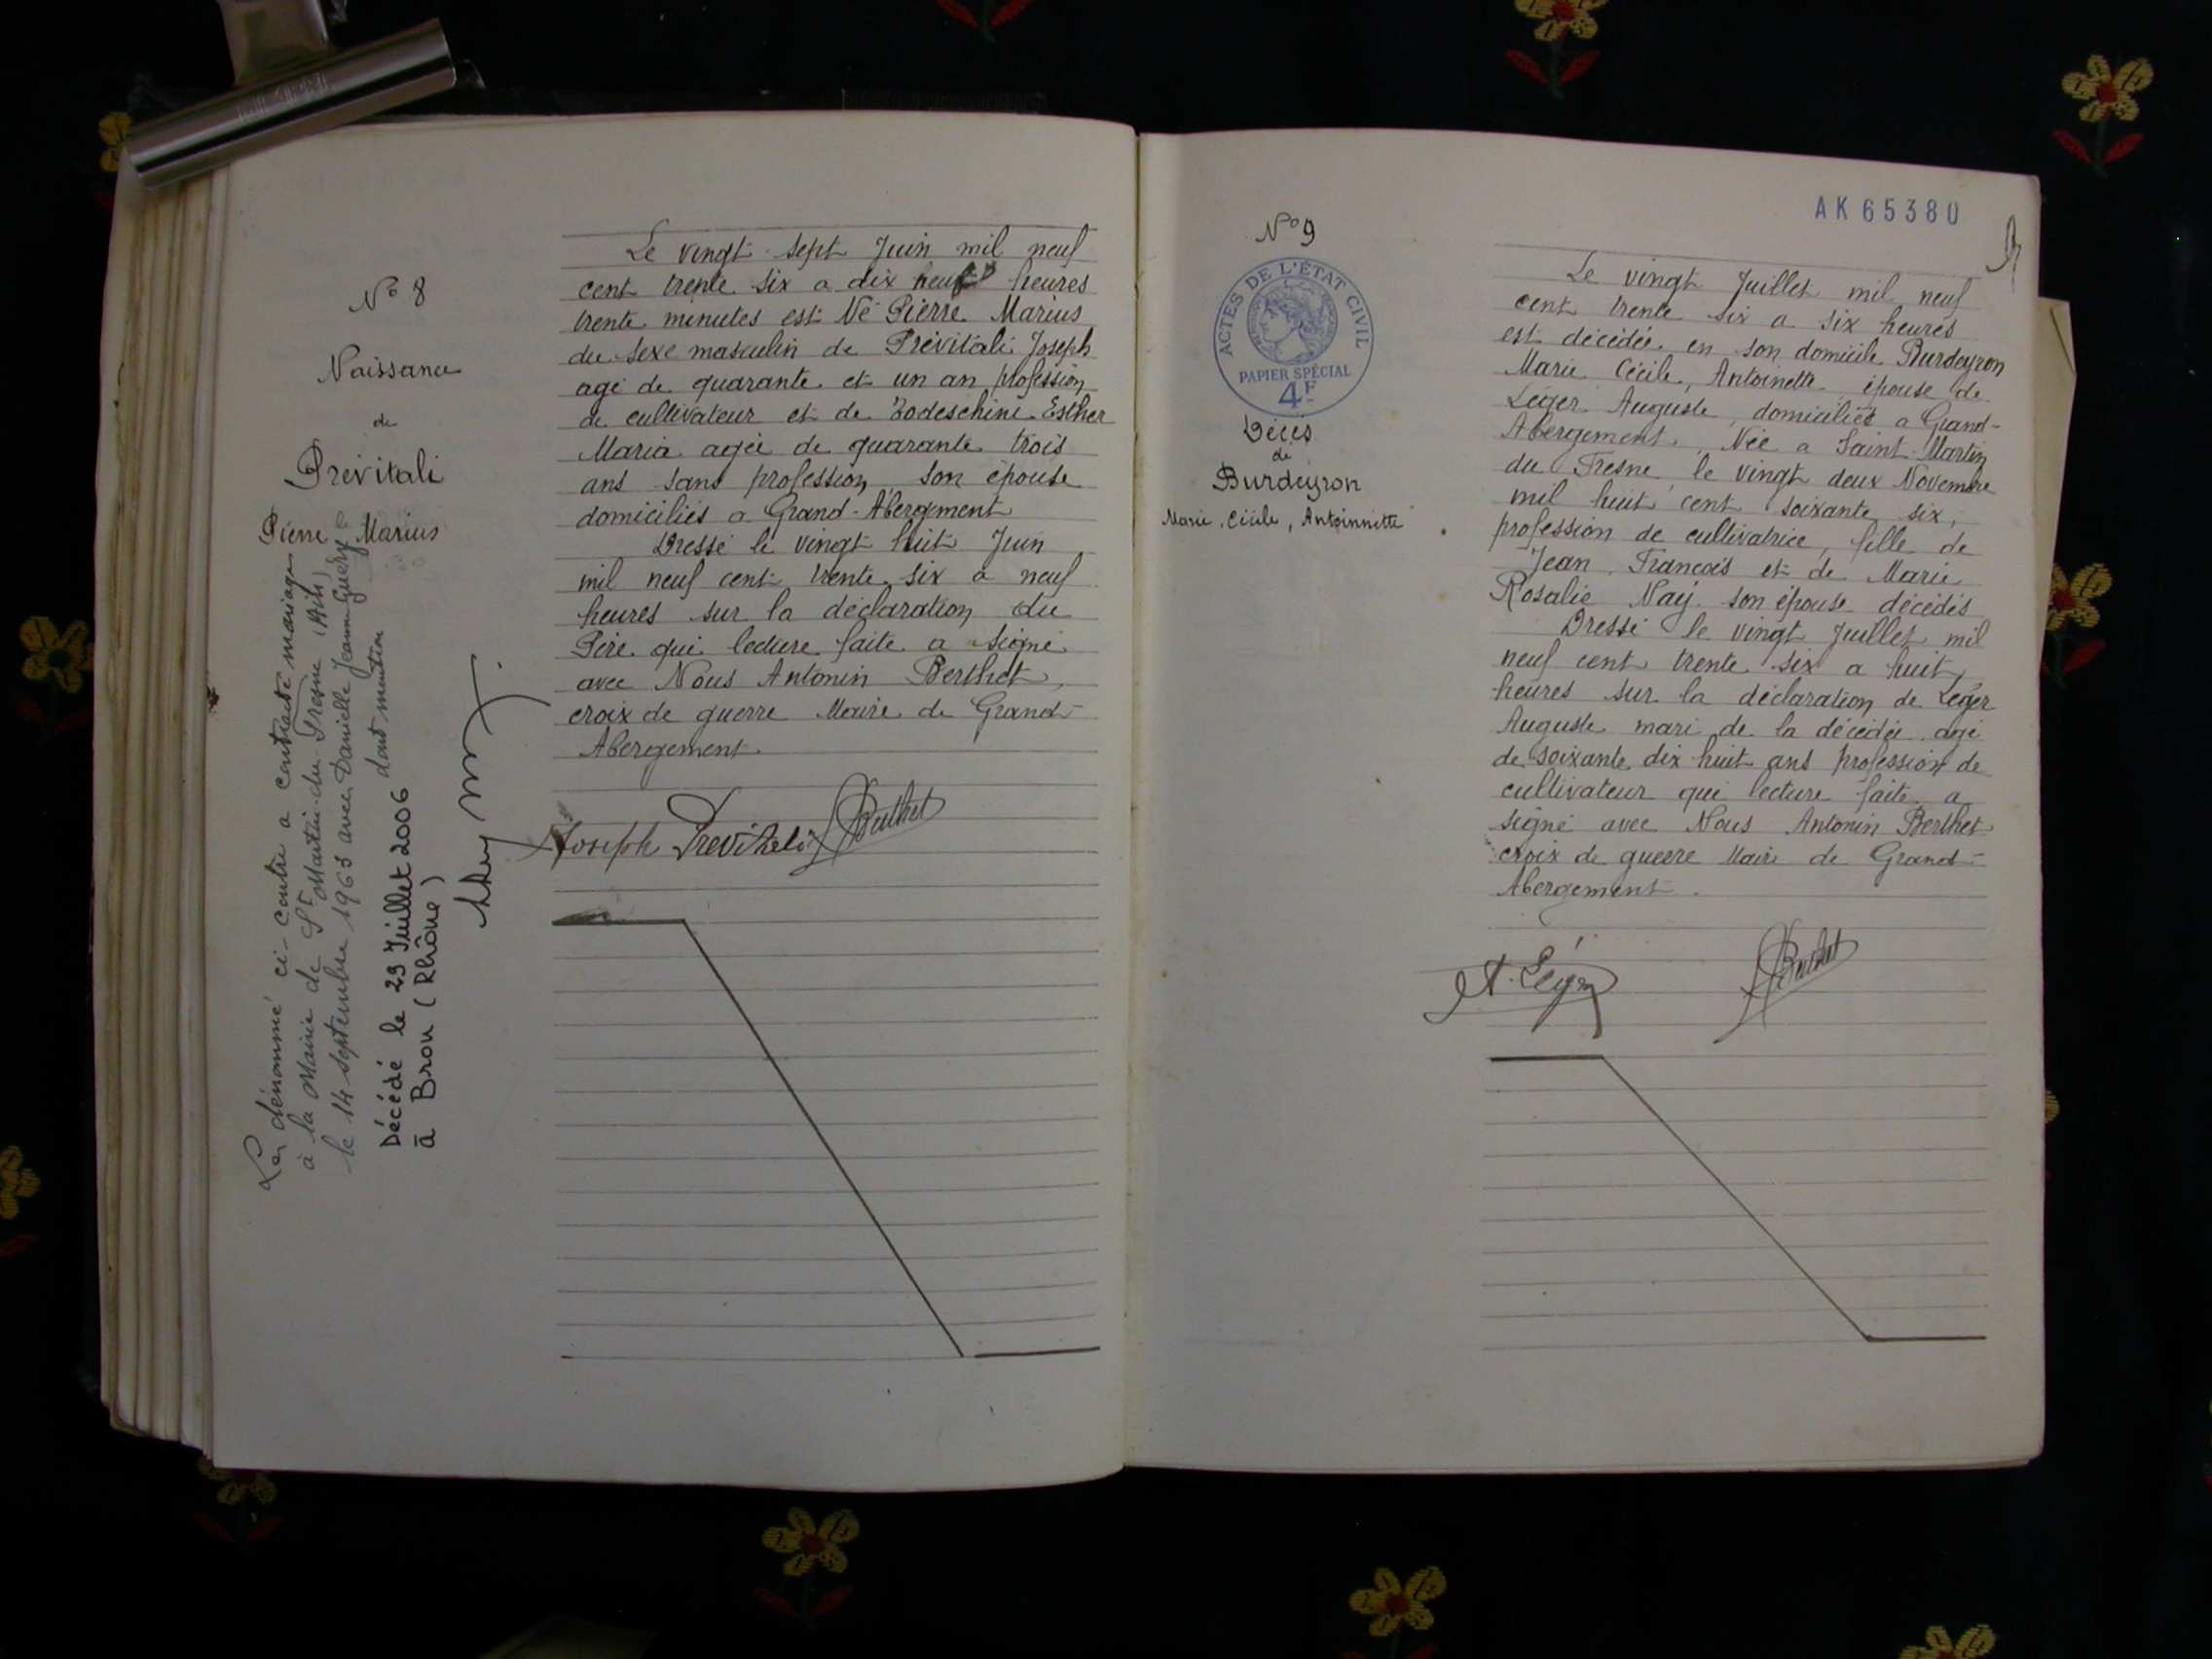 N° 8
Naissance
de
Prévitali
Pierre Marius
Le dénommé ci-contre a contracté mariage
à la Mairie de St Martin-du-Fresne (Ain)
le 14 septembre 1963 avec Danielle Jeanne Guéry
dont mention
Décédé le 23 Juillet 2006
à Bron (Rhône)
Le vingt sept Juin mil neuf
cent trente six a dix neuf heures
trente minutes est Né Pierre Marius
du sexe masculin de Prévitali Joseph
agé de quarante et un an profession
de cultivateur et de Todeschini Esther
Maria agée de quarante trois
ans sans profession son épouse
domiciliés a Grand-Abergement
Dressé le vingt huit Juin
mil neuf cent trente six a neuf
heures sur la déclaration du
Père qui lecture faite a signé
avec Nous Antonin Berthet,
croix de guerre Maire de Grand-
Abergement.
Joseph Previtali Berthet
AK 65380
N° 9
ACTES DE L'ÉTAT CIVIL
PAPIER SPÉCIAL
4F
Décès
de
Burdeyron
Marie, Cécile, Antoinnette
Le vingt Juillet mil neuf
cent trente six a six heures
est décédée en son domicile Burdeyron
Marie Cécile, Antoinette épouse de
Léger Auguste domiciliée a Grand-
Abergement, Née a Saint-Martin
du Fresne le vingt deux Novembre
mil huit cent soixante six,
profession de cultivatrice, fille de
Jean François et de Marie
Rosalie Nay son épouse décédés
Dressé le vingt Juillet mil
neuf cent trente six a huit
heures sur la déclaration de Léger
Auguste mari de la décédée agé
de soixante dix huit ans profession de
cultivateur qui lecture faite a
signé avec Nous Antonin Berthet
croix de guerre Maire de Grand-
Abergement.
A. Léger Berthet